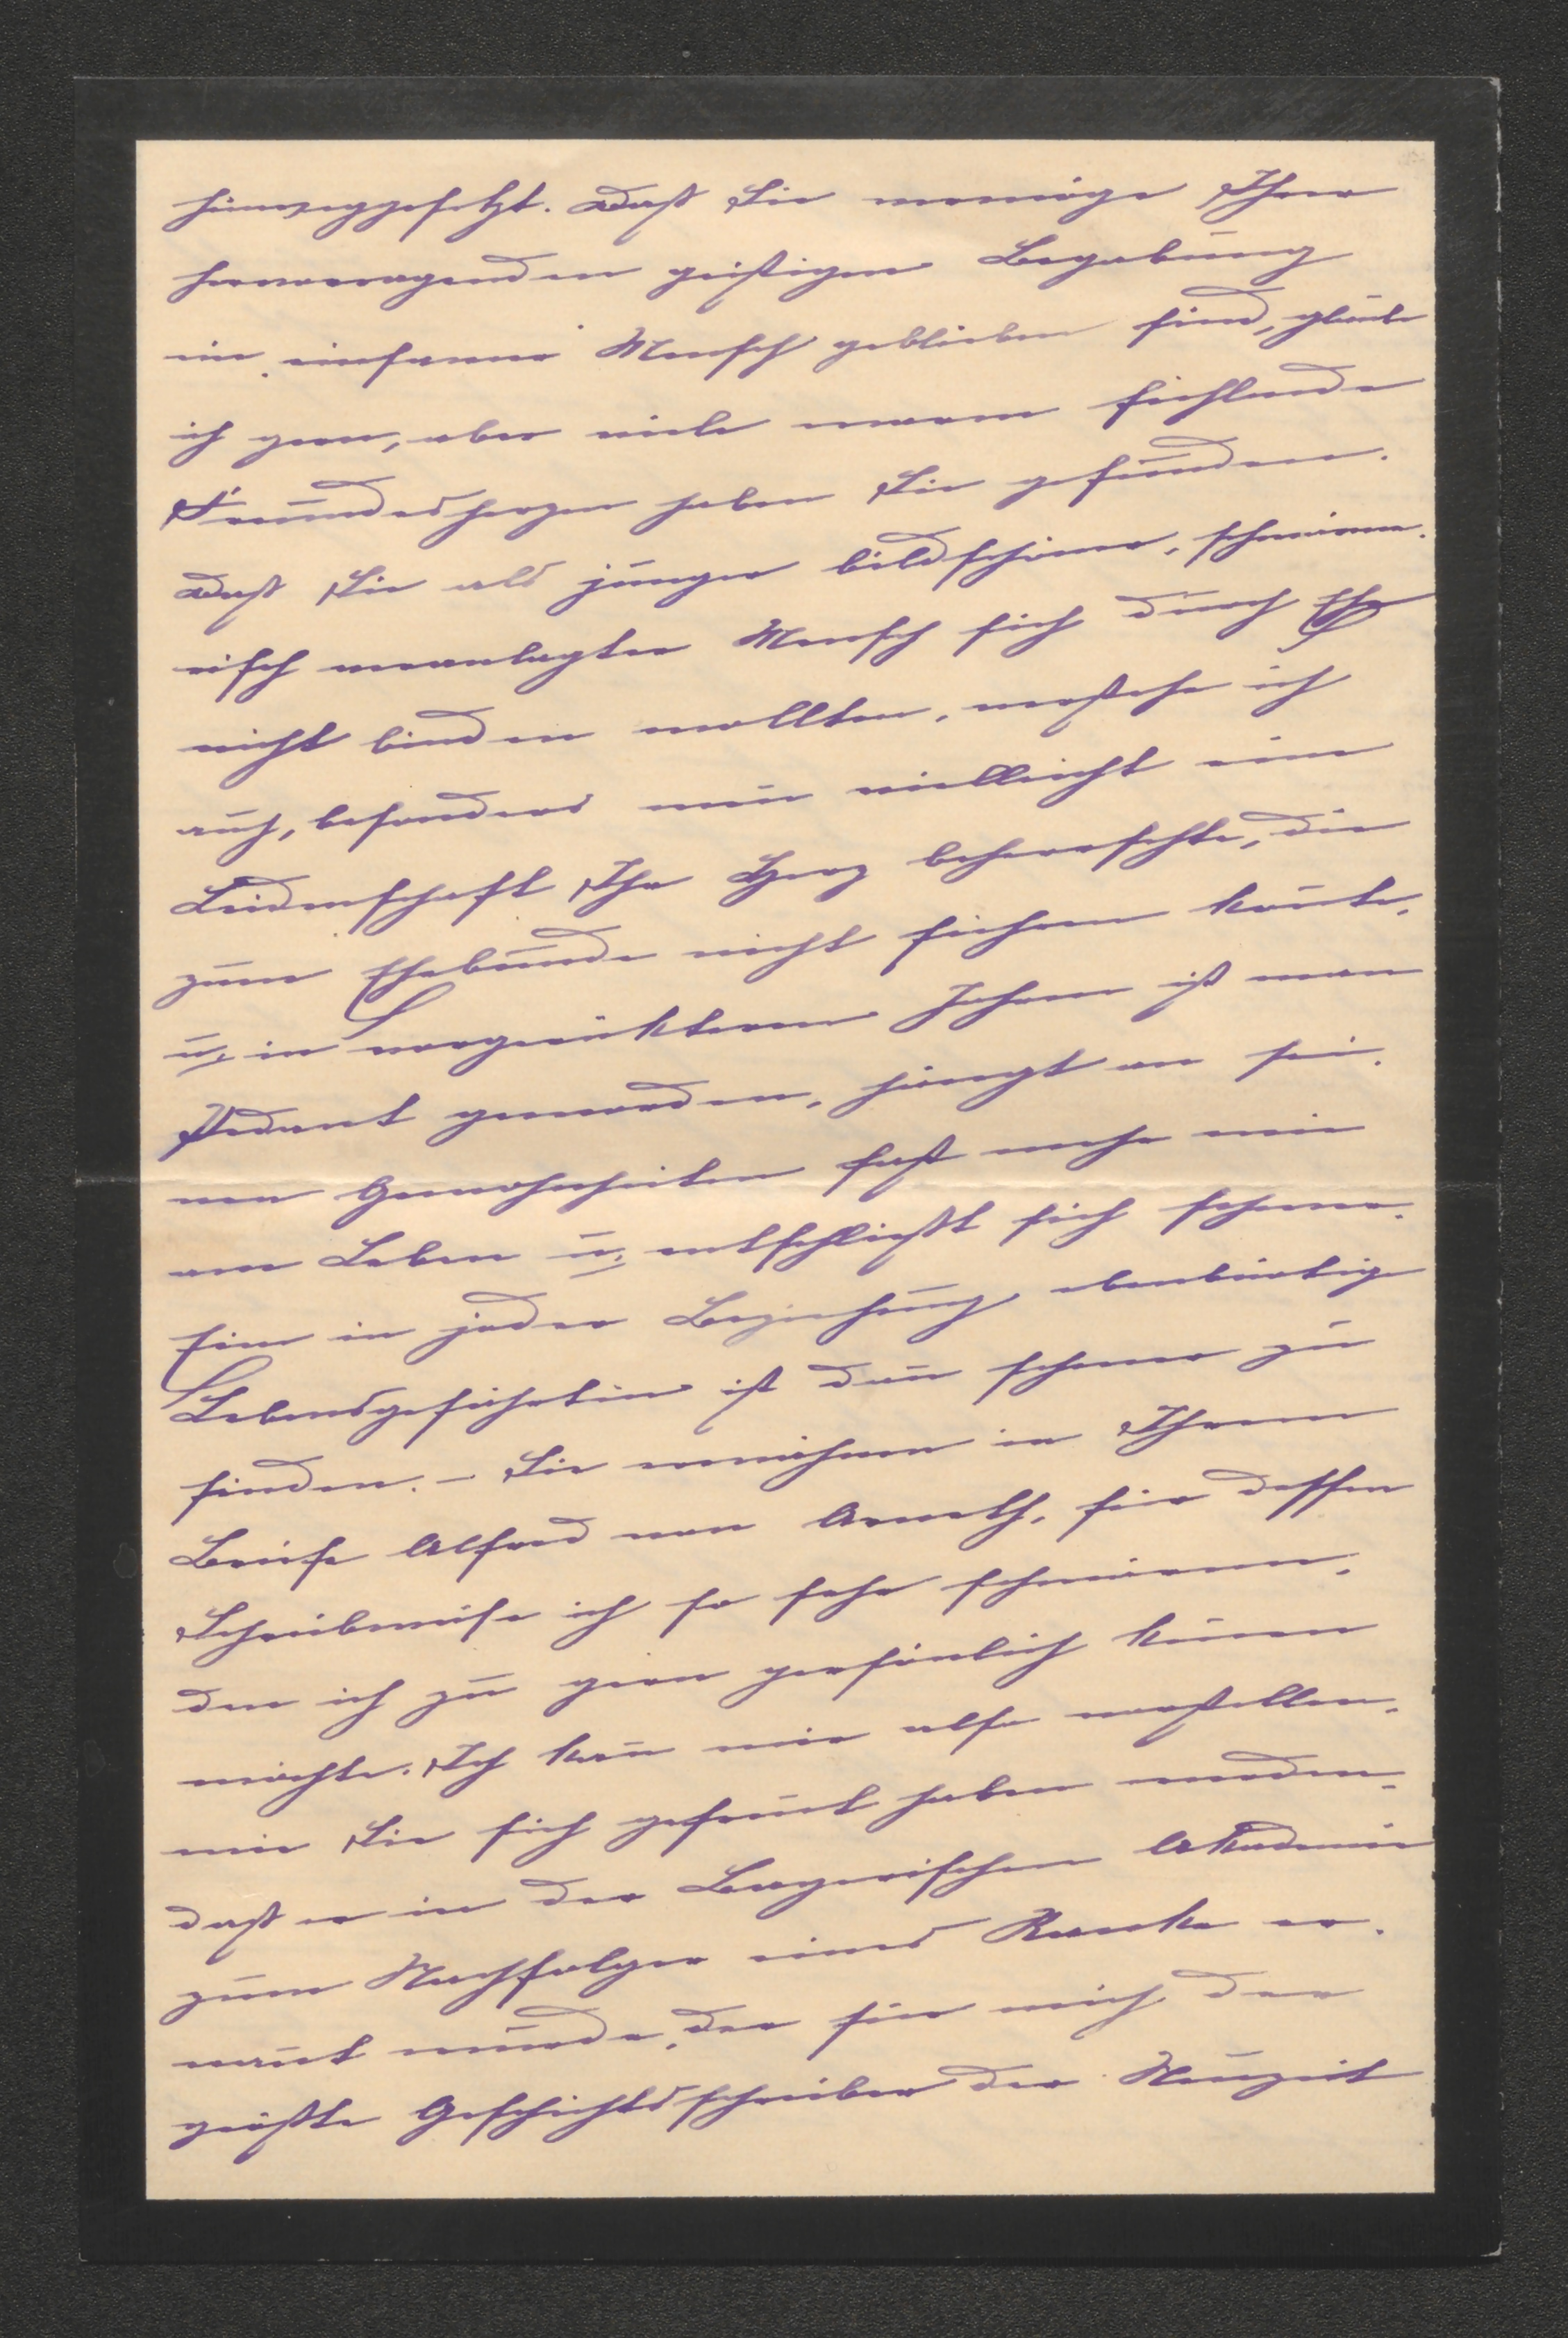 hinweggesetzt. Daß Sie vermöge Ihrer
hervorragenden geistigen Begabung
ein einsamer Mensch geblieben sind, glaube
ich gern, aber viele warm fühlende
Freundesherzen haben Sie gefunden.
Daß Sie als junger bildschöner, schwärme-
risch veranlagter Mensch sich durch Ehe
nicht binden wollten, verstehe ich
auch, besonders weil vielleicht eine
Leidenschaft Ihr Herz beherrschte, die
zum Ehebunde nicht führen koñte,
u. in vorgerückteren Jahren ist man
Pedant geworden, hängt an sei-
nen Gewohnheiten fast mehr wie
am Leben u. entschließt sich schwer.
Eine in jeder Beziehung ebenbürtige
Lebensgefährtin ist dañ schwer zu
finden. – Sie erwähnen in Ihrem
Briefe Alfred von Arneth, für dessen
Schreibweise ich so sehr schwärme,
den ich zu gern persönlich keñen
möchte. Ich kañ mir also vorstellen,
wie Sie sich gefreut haben werden,
daß er in der Bayerischen Akademie
zum Nachfolger eines Ranke er-
nañt wurde, der für mich der
größte Geschichtsschreiber der Neuzeit